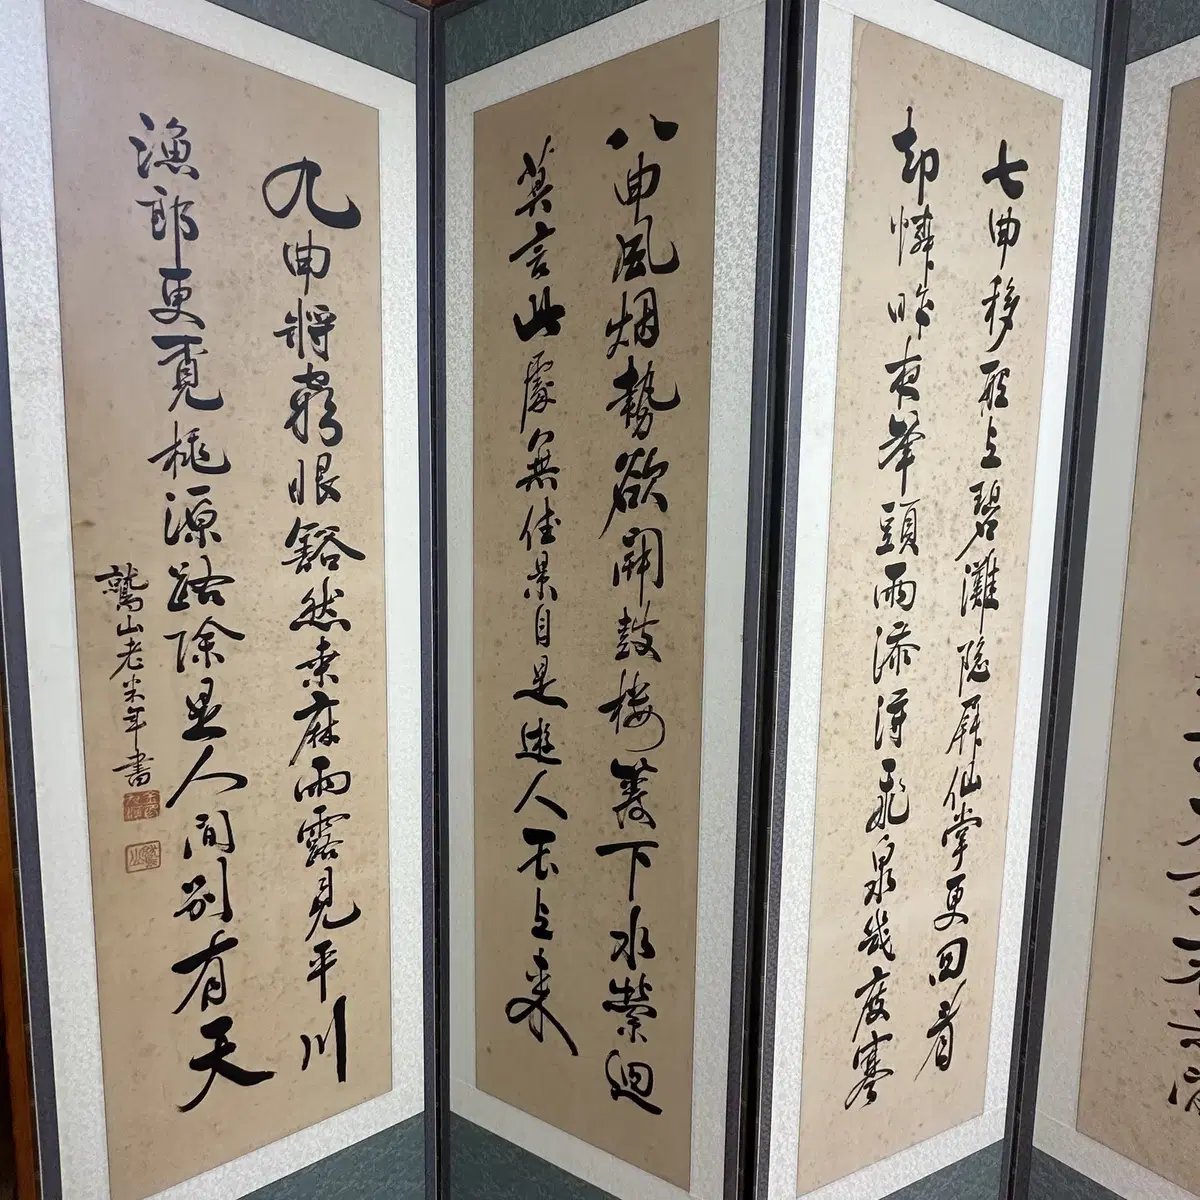 七曲移船上碧灘隱屏仙掌更回看
却憐昨夜峯頭雨添得飛泉幾度寒
八曲風烟勢欲開鼓樓巖下水縈迴
莫言此處無佳景自是遊人不上来
九曲將窮眼豁然桑麻雨露見平川
漁郎更覓桃源路除是人間別有天
鷲山老米年書